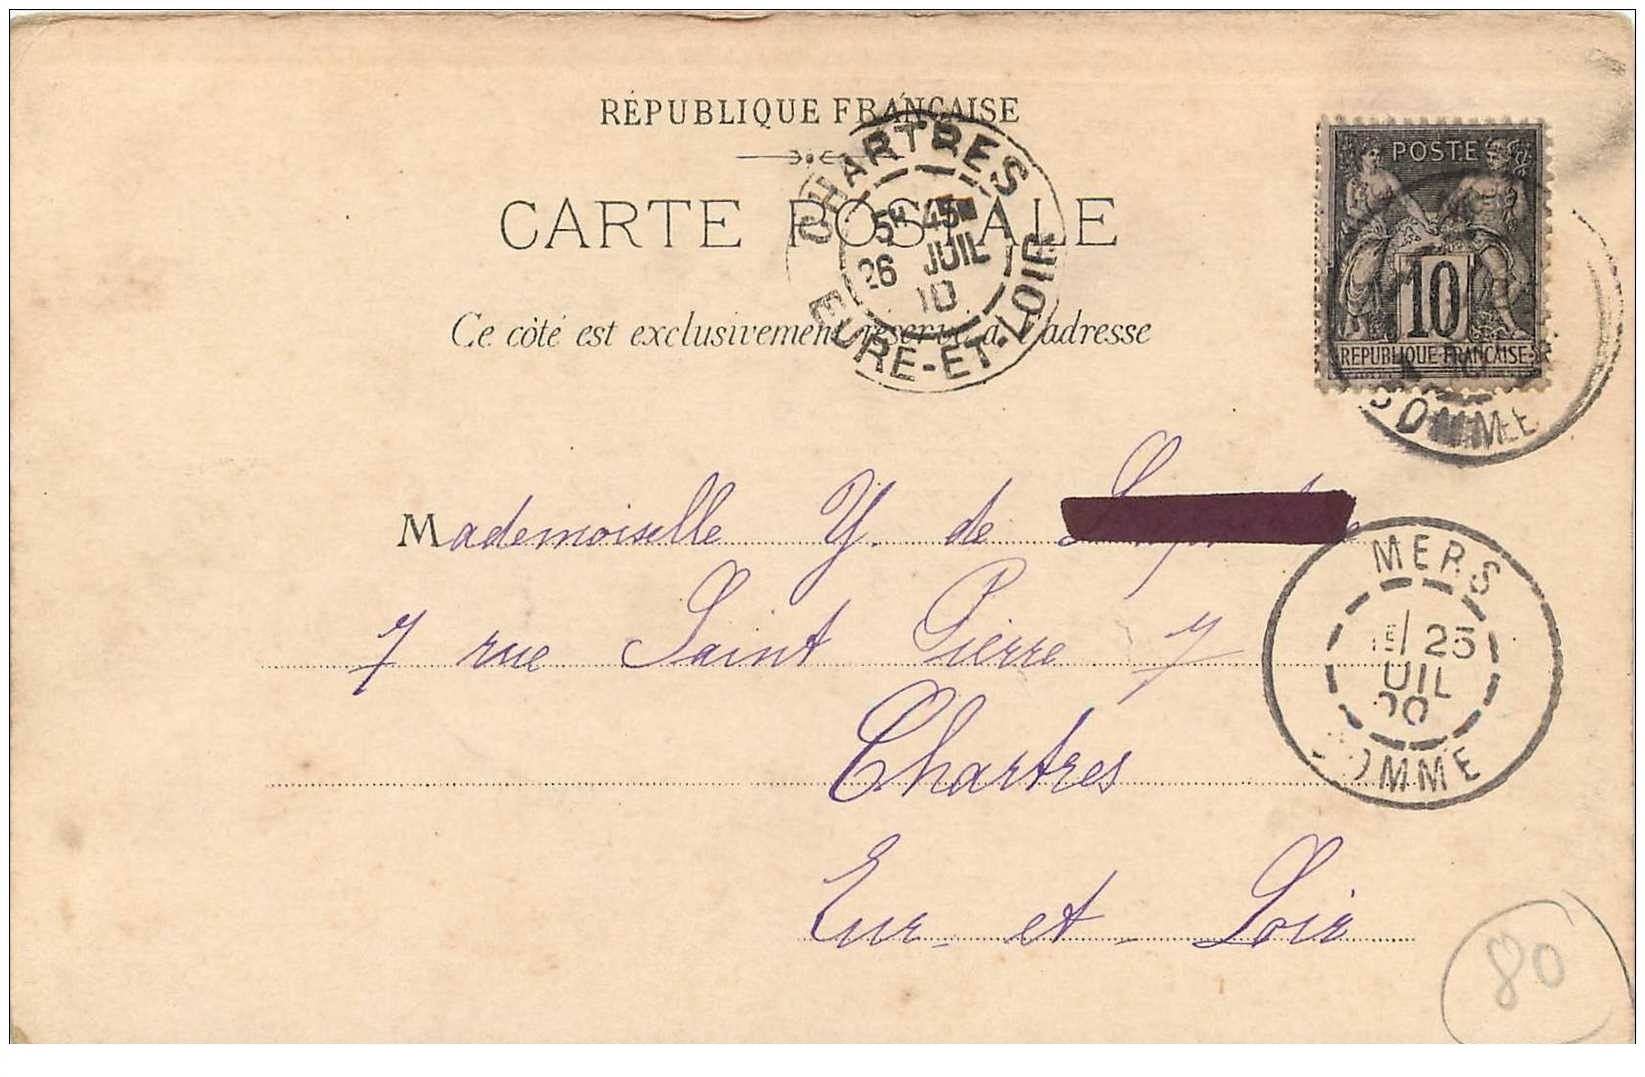 RÉPUBLIQUE FRANÇAISE
CARTE POSTALE
Ce côté est exclusivement réservé à l'adresse
CHARTRES
5H 45
26 JUIL
10
EURE-ET-LOIR
POSTE
10
REPUBLIQUE FRANÇAISE
SOMME
Mademoiselle Y. de
7 rue Saint Pierre 7
Chartres
Eur-et-Loir
MERS
25
UIL
00
SOMME
80